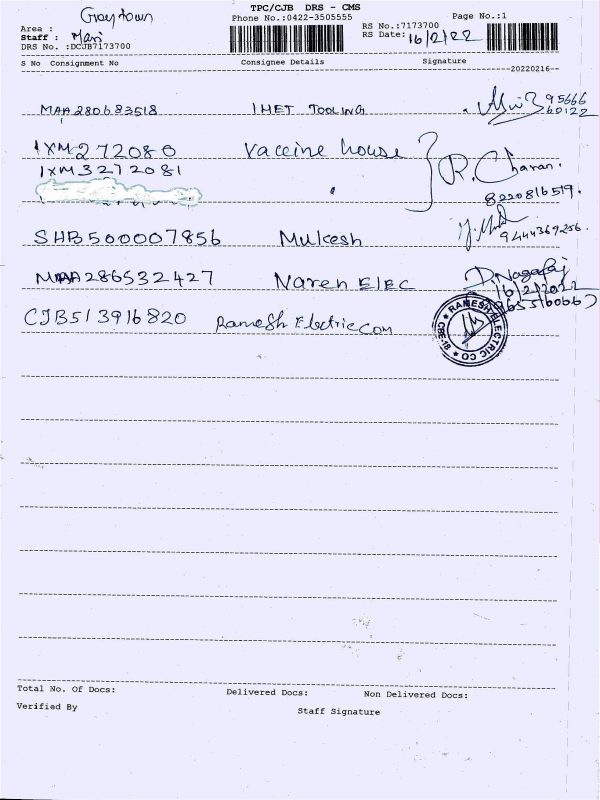 TPC/CJB DRS - CMS
Graytown
Phone No.:0422-3505555
Page No.:1
Area :
RS No.:7173700
Staff : Mani
RS Date: 16/2/22
DRS No. :DCJB7173700
S No Consignment No Consignee Details Signature
20220216
MAA280683518 IHET TOOLING 95666
60122
1XM272080 Vaccine house
1XM3272081 R. Charan.
8220816519.
SHB500007856 Mukesh
9444369256.
MAA286532427 Naren ELEC D. Nagaraj
16/2/2022
CJB513916820 Ramesh Electric COM
RAMESH ELECTRIC CO
CBE-18
Total No. Of Docs: Delivered Docs: Non Delivered Docs:
Verified By Staff Signature